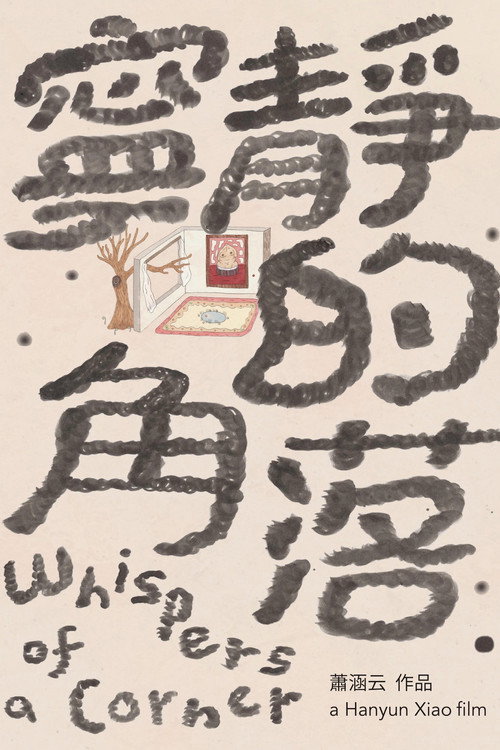 寧靜
的
角落
Whispers
of
a Corner
蕭涵云 作品
a Hanyun Xiao film